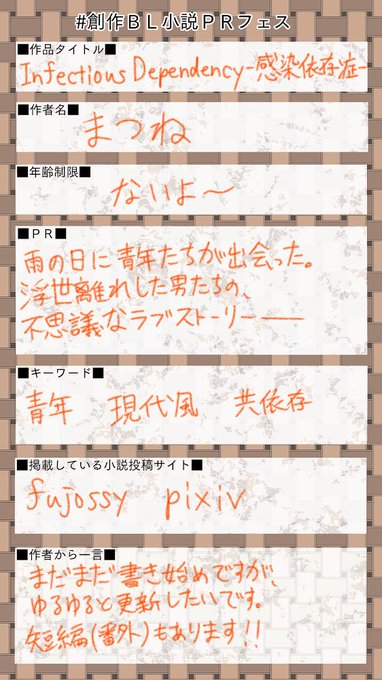 #創作ＢＬ小説ＰＲフェス
■作品タイトル■
Infectious Dependency-感染依存症-
■作者名■
まつね
■年齢制限■
ないよ～
■ＰＲ■
雨の日に青年たちが出会った。
浮世離れした男たちの、
不思議なラブストーリー――
■キーワード■
青年 現代風 共依存
■掲載している小説投稿サイト■
fujossy pixiv
■作者から一言■
まだまだ書き始めですが、
ゆるゆると更新したいです。
短編(番外)もあります!!